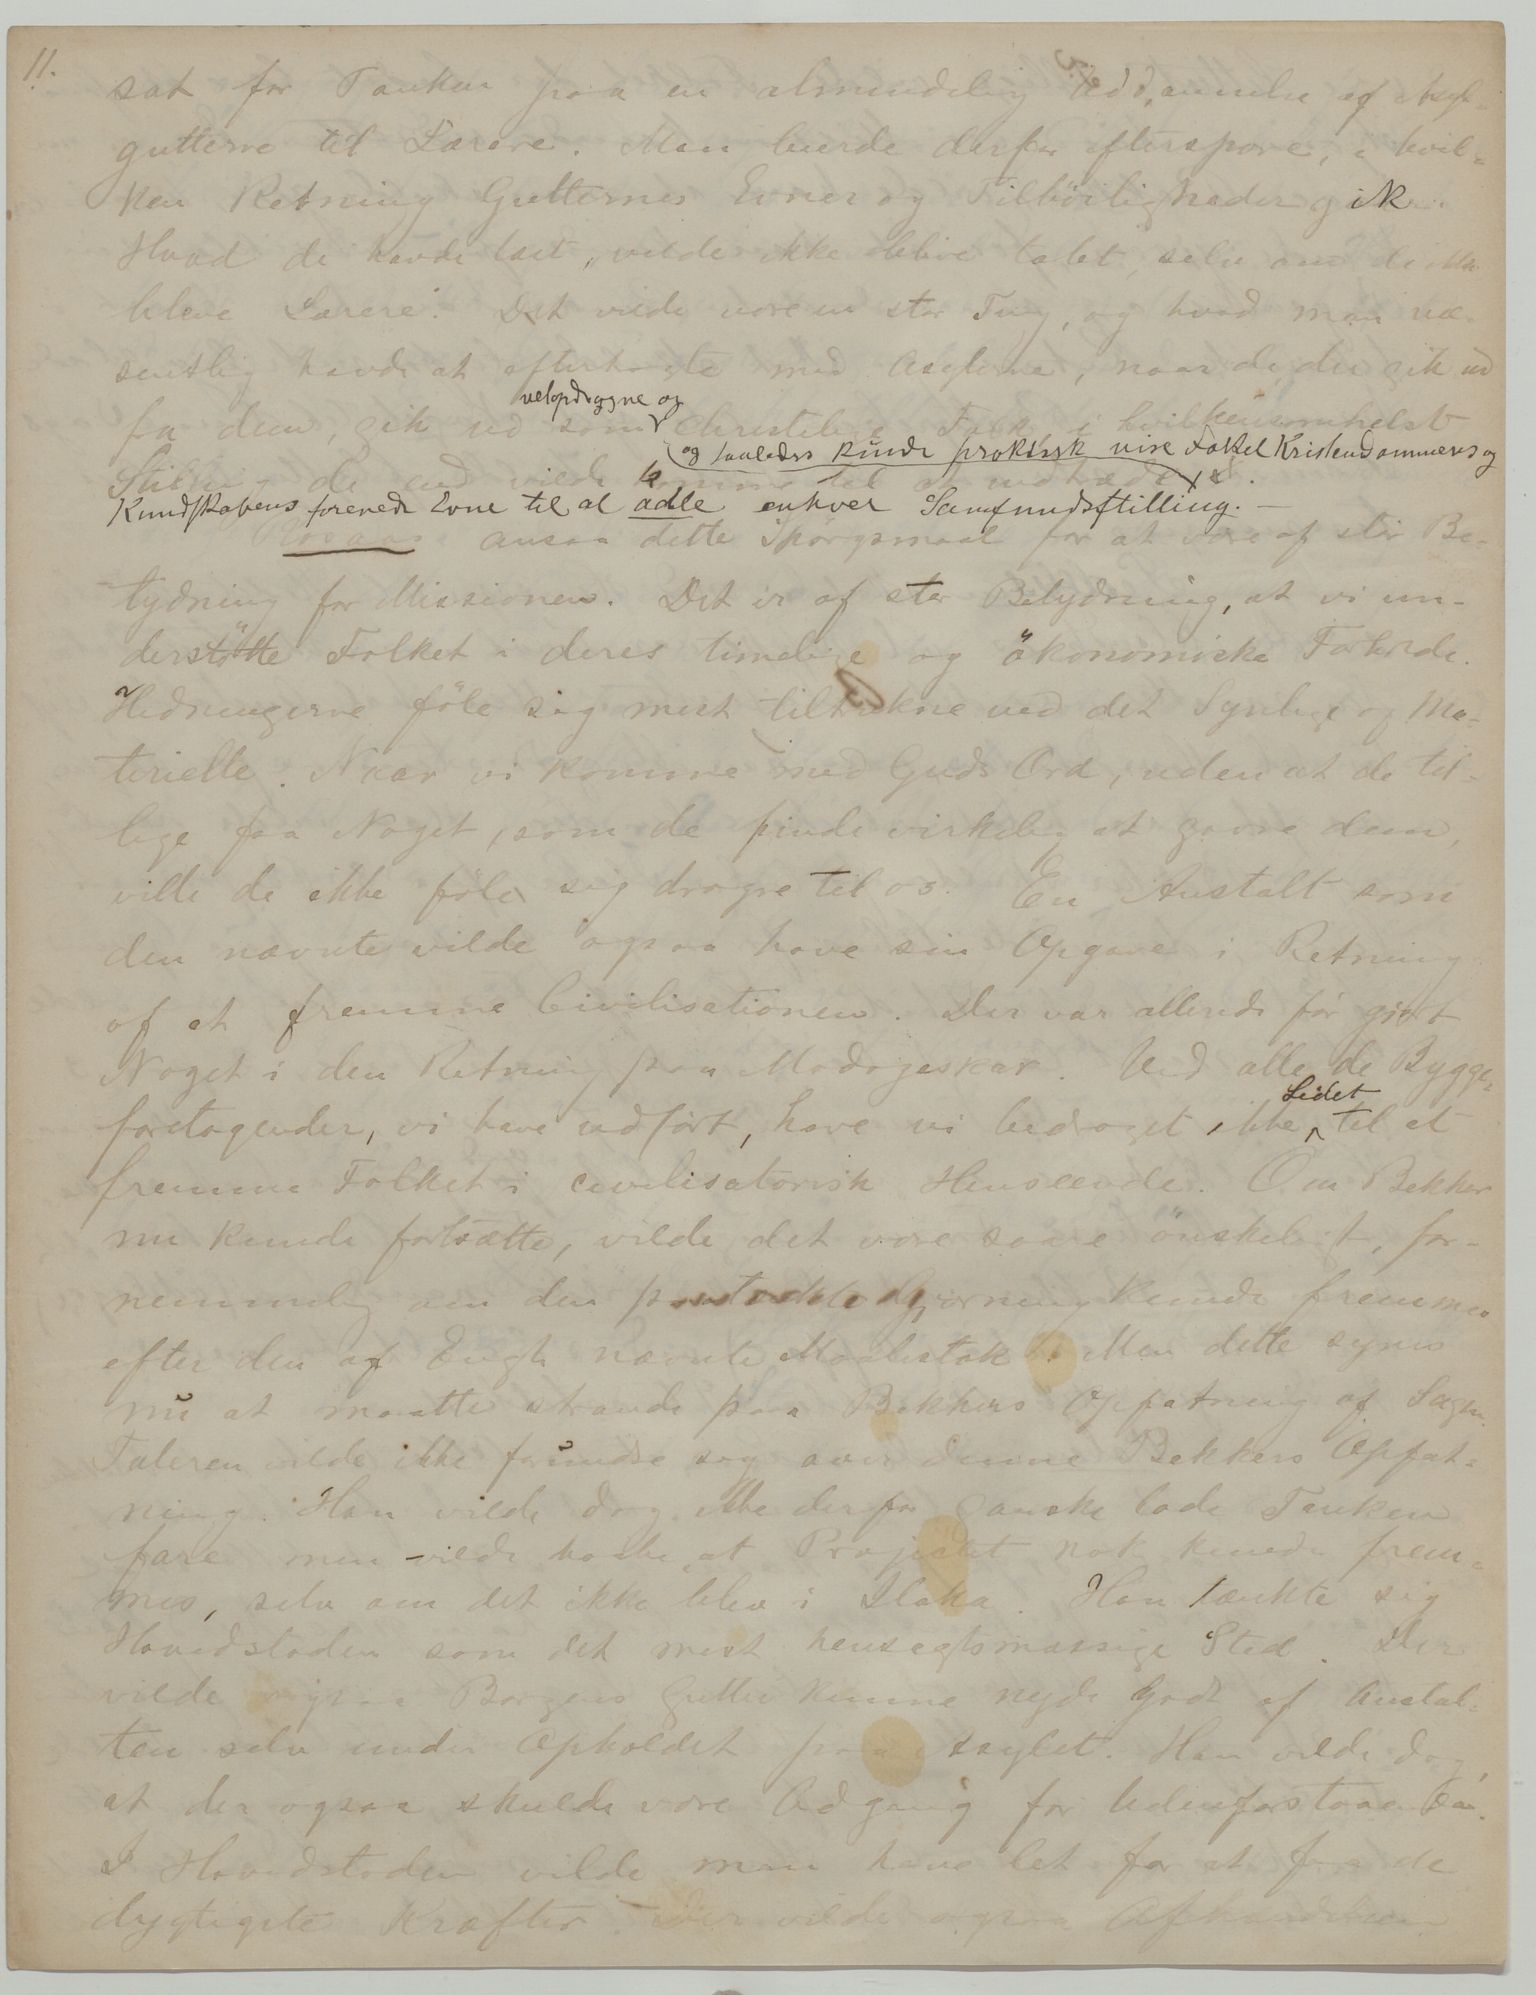 11.
sat for Tanken paa en almindelig Uddannelse af Asyl-
gutterne til Lærere. Man burde derfor efterspore, i hvil-
ken Retning Gutternes Evner og Tilböiligheder gik.
Hvad de havde lært, vilde ikke blive tabt, selv om de ikke
bleve Lærere. Det vilde være en stor Ting, og hvad man væ-
sentlig havde at eftertragte med Asylerne, naar de, der gik ud
velopdragne og
fra dem, gik ud som christelige Folk i hvilkensomhelst
og saaledes kunde praktisk vise Folket Kristendommens og
Stilling de end vilde komme til at indtræde i.
Kundskabens forenede Evne til at adle enhver Samfundsstilling. —
Rosaas ansaa dette Spörgsmaal for at være af stor Be-
tydning for Missionen. Det er af stor Betydning, at vi un-
derstötte Folket i deres timelige og ökonomiske Forhold.
Hedningerne föle sig mest tiltrukne ved det Synlige og Ma-
terielle. Naar vi komme med Guds Ord, uden at de til-
lige faa Noget, som de finde virkelig at gavne dem,
ville de ikke föle sig dragne til os. En Anstalt som
den nævnte vilde ogsaa have sin Opgave i Retning
af at fremme Civilisationen. Der var allerede för gjort
Noget i den Retning paa Madagaskar. Ved alle de Bygge-
Lidet
foretagender, vi have udfört, have vi bidraget ikke til at
fremme Folket i civilisatorisk Henseende. Om Bekker
nu kunde fortsætte, vilde det være saare önskeligt, for-
nemmelig om den paatænkte Gjerning kunde fremmes
efter den af Engh nævnte Maalestok. Men dette synes
nu at maatte strande paa Bekkers Opfatning af Sagen.
Taleren vilde ikke forundre sig over denne Bekkers Opfat-
ning. Han vilde dog ikke derfor ganske lade Tanken
fare men vilde haabe, at Projektet nok kunde frem-
mes, selv om det ikke blev i Ilaka. Han tænkte sig
Hovedstaden som det mest hensigtsmæssige Sted. Der
vilde ogsaa Borgens Gutter kunne nyde godt af Anstal-
ten selv under Opholdet paa Asylet. Han vilde dog,
at der ogsaa skulde være Adgang for Udenforstaaende.
I Hovedstaden vilde man have let for at faa de
dygtigste Kræfter. Der vilde ogsaa Afhændelsen